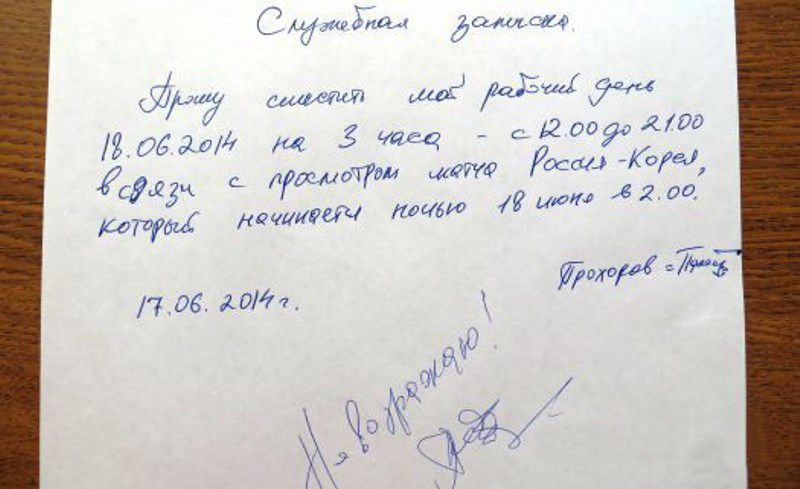 Служебная записка.
Прошу сместить мой рабочий день
18.06.2014 на 3 часа - с 12.00 до 21.00
в связи с просмотром матча Россия-Корея,
который начинается ночью 18 июня в 2.00.
Прохоров =
17.06.2014 г.
Не возражаю!